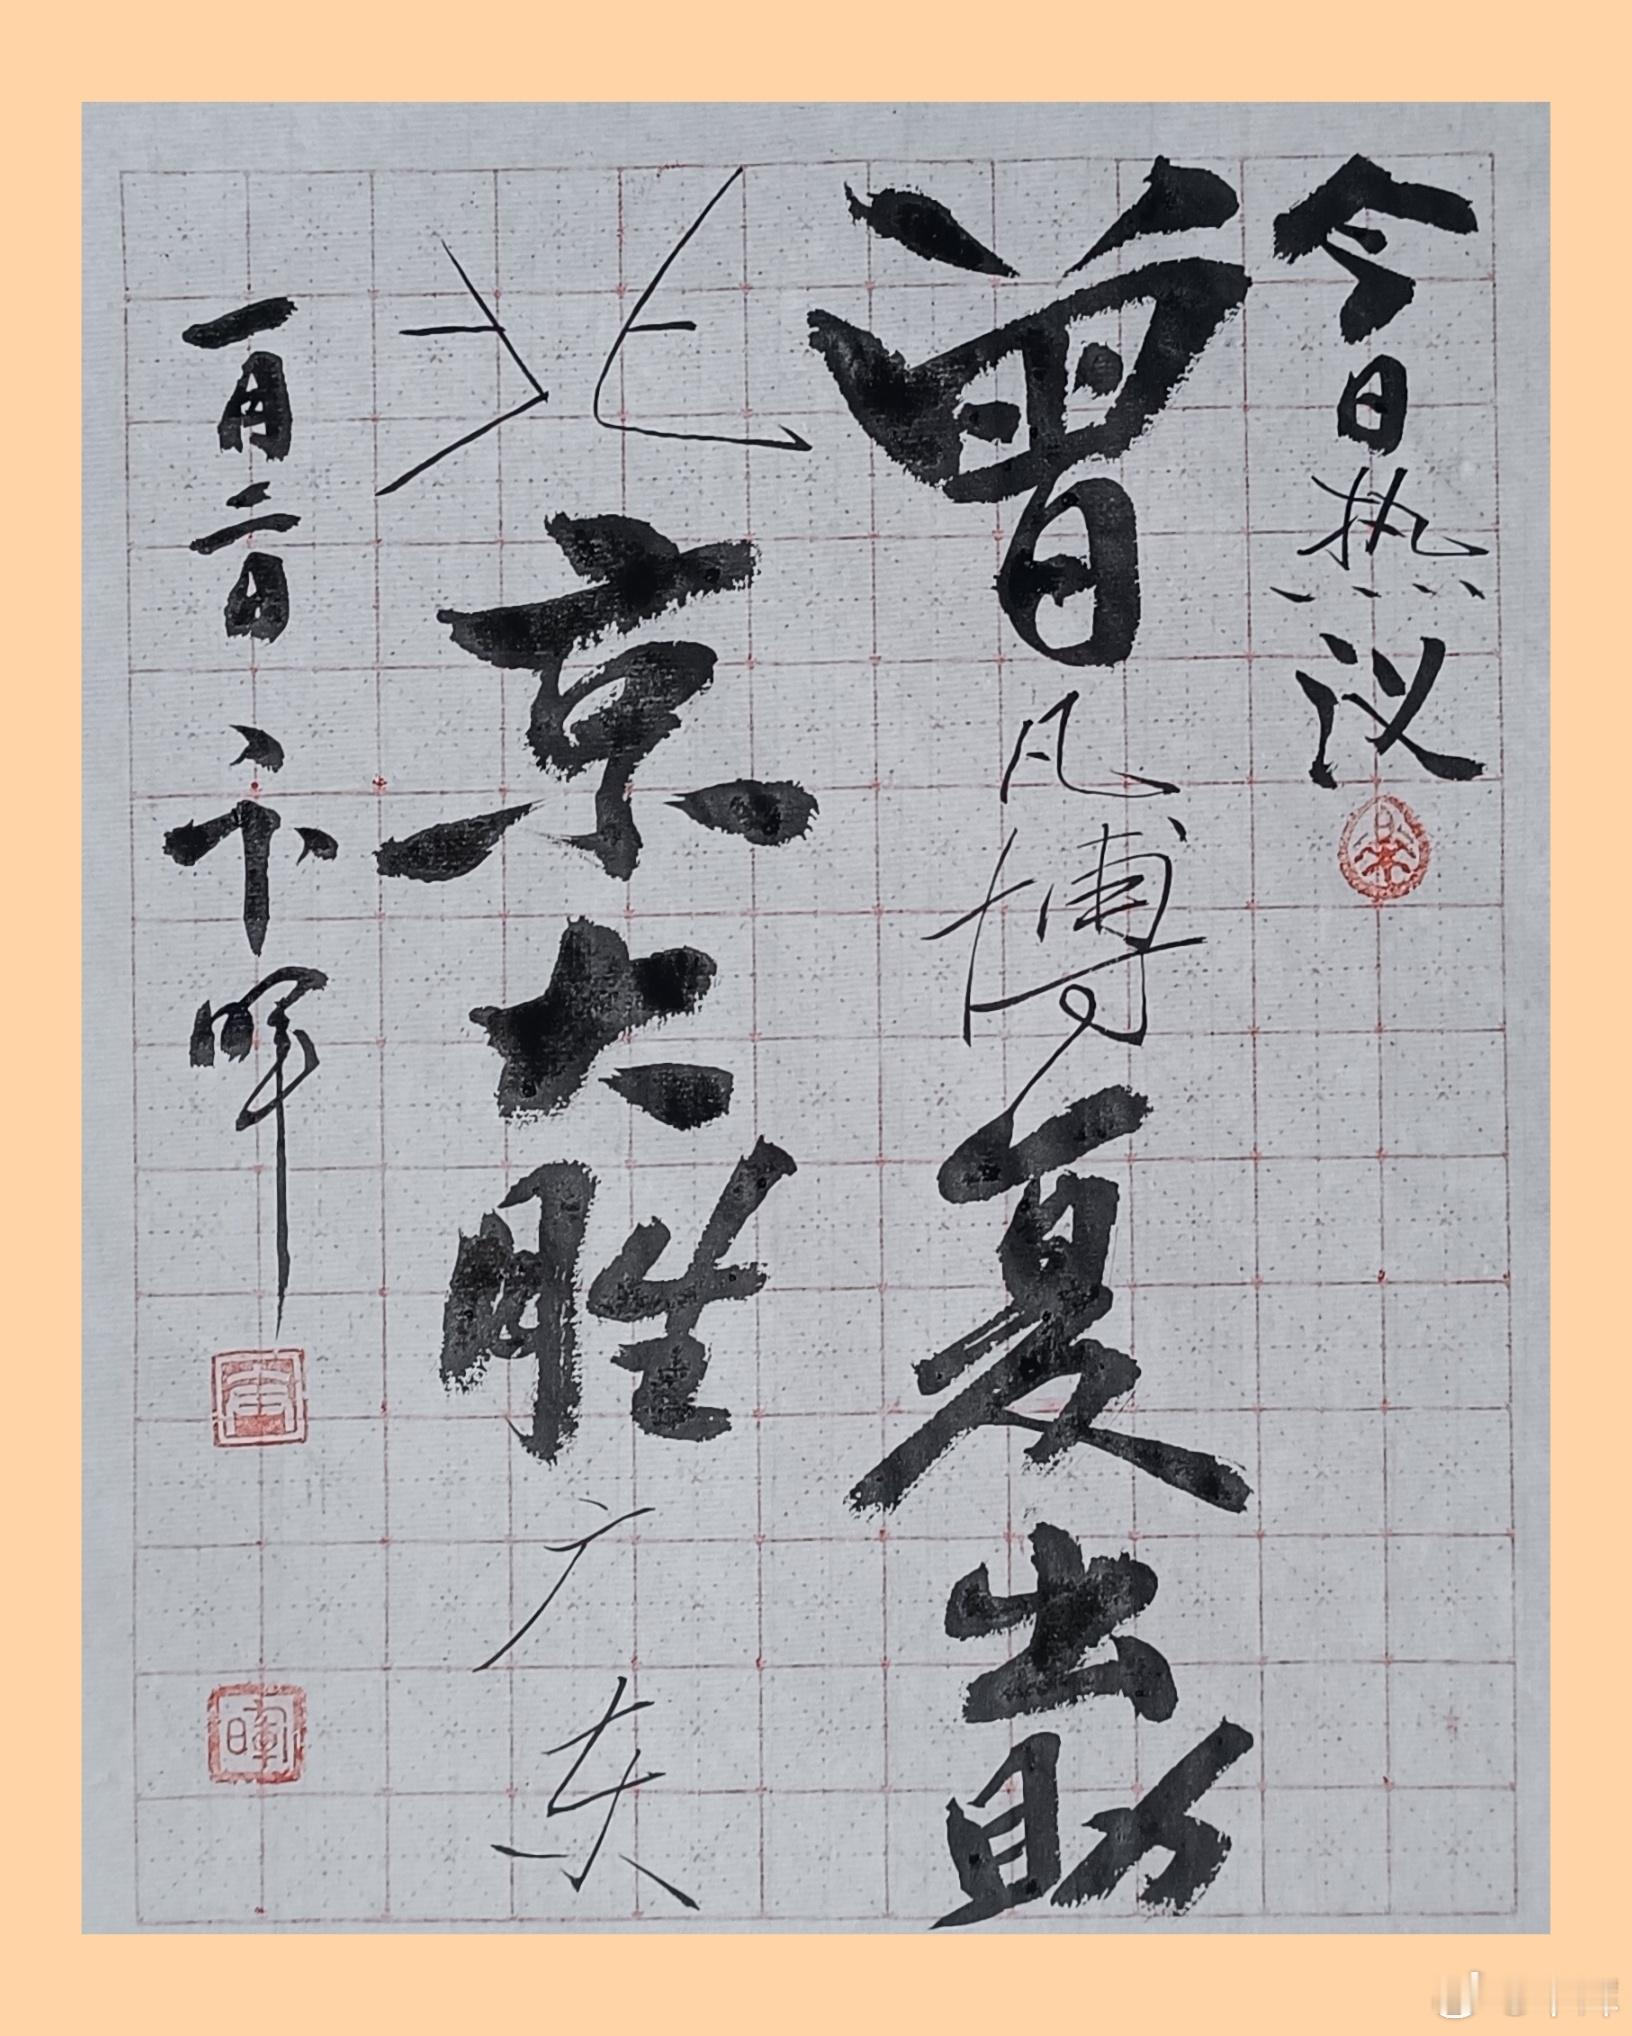 今日热议
曾凡博复出助
北京大胜广东
一月二日 卞晖